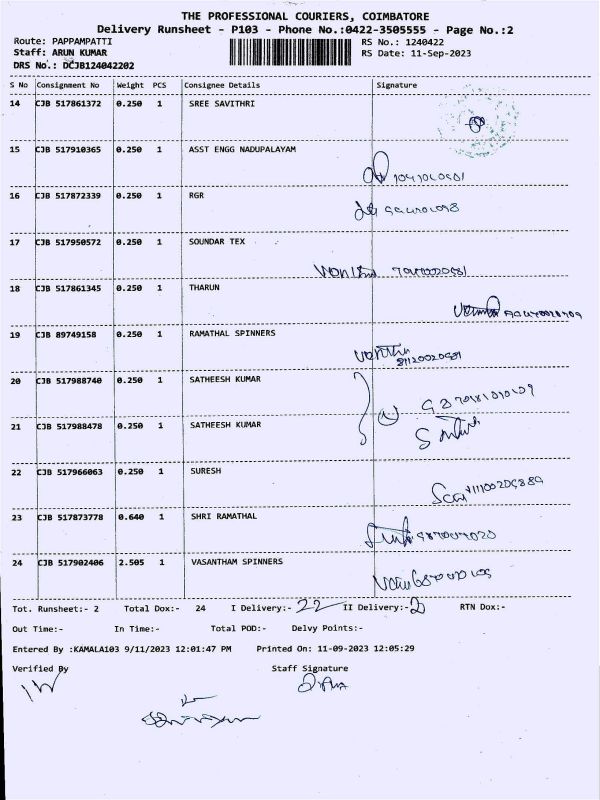 THE PROFESSIONAL COURIERS, COIMBATORE
Delivery Runsheet - P103 - Phone No.:0422-3505555 - Page No.:2
Route: PAPPAMPATTI RS No.: 1240422
Staff: ARUN KUMAR RS Date: 11-Sep-2023
DRS No.: DCJB124042202
S No Consignment No Weight PCS Consignee Details Signature
14 CJB 517861372 0.250 1 SREE SAVITHRI
15 CJB 517910365 0.250 1 ASST ENGG NADUPALAYAM
16 CJB 517872339 0.250 1 RGR
17 CJB 517950572 0.250 1 SOUNDAR TEX
18 CJB 517861345 0.250 1 THARUN
19 CJB 89749158 0.250 1 RAMATHAL SPINNERS
20 CJB 517988740 0.250 1 SATHEESH KUMAR
21 CJB 517988478 0.250 1 SATHEESH KUMAR
22 CJB 517966063 0.250 1 SURESH
23 CJB 517873778 0.640 1 SHRI RAMATHAL
24 CJB 517902406 2.505 1 VASANTHAM SPINNERS
Tot. Runsheet:- 2 Total Dox:- 24 I Delivery:- 22 II Delivery:- 2 RTN Dox:-
Out Time:- In Time:- Total POD:- Delvy Points:-
Entered By :KAMALA103 9/11/2023 12:01:47 PM Printed On: 11-09-2023 12:05:29
Verified By Staff Signature